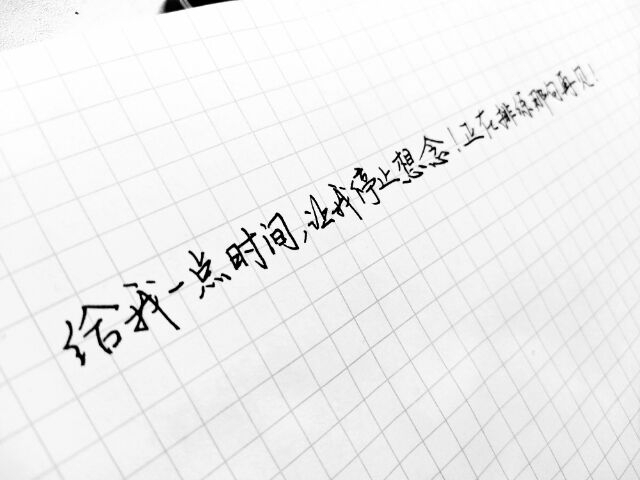 给我一点时间,让我停止想念!正在排练那句再见!